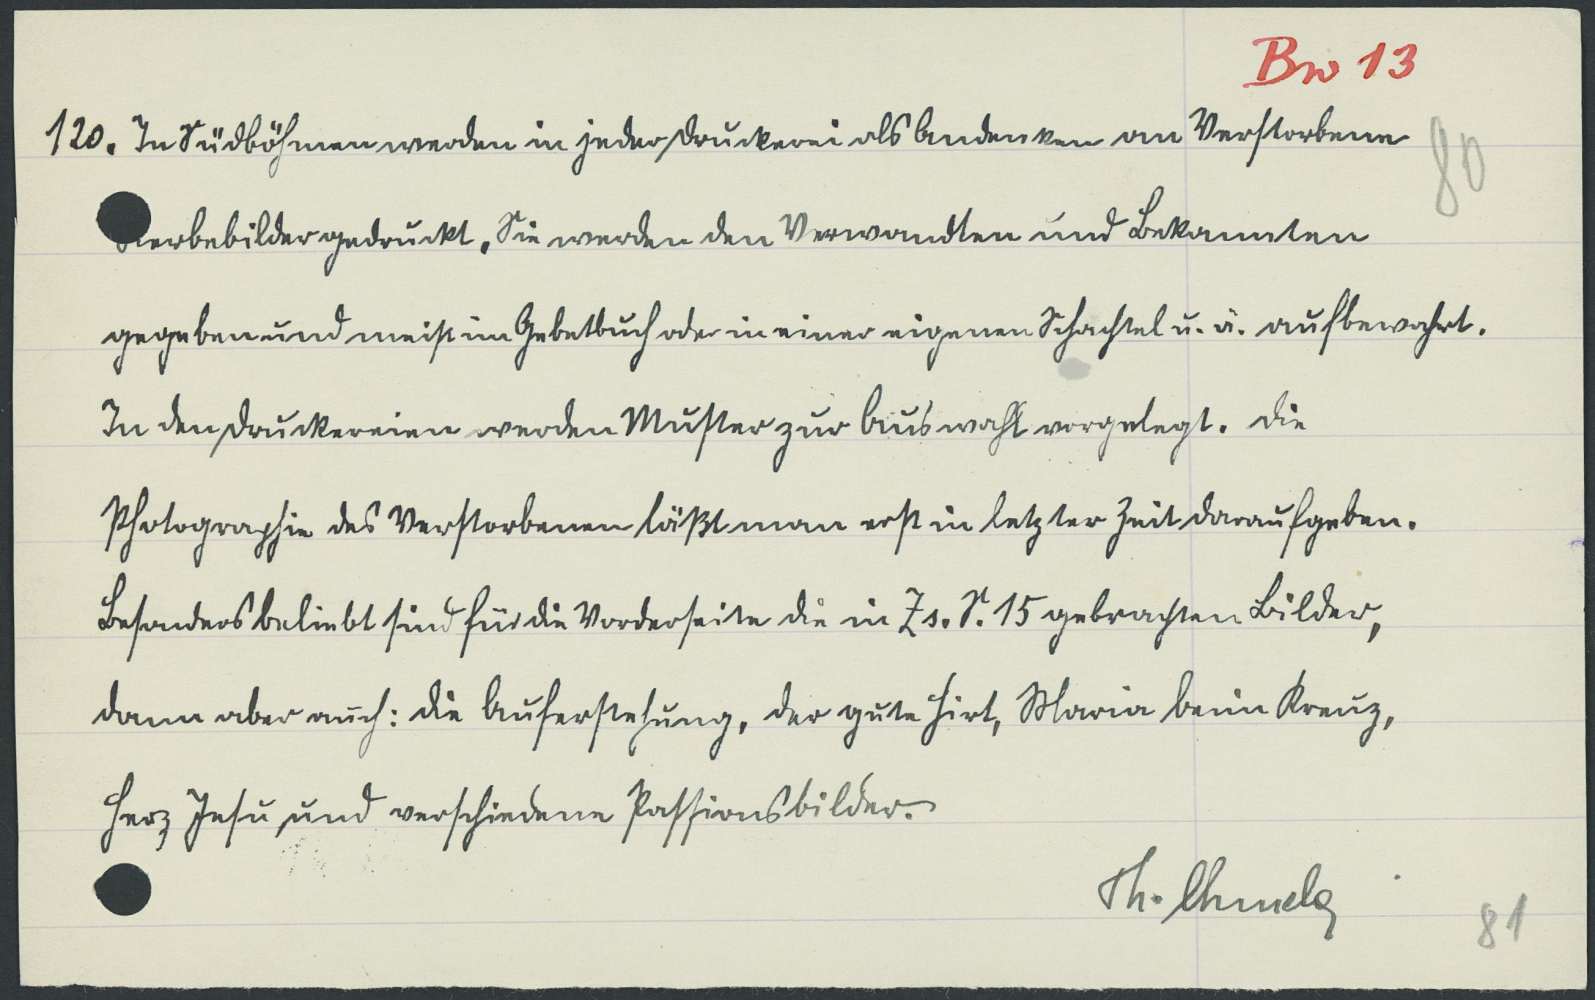 Bw 13
120. In Südböhmen werden in jeder Druckerei als Andenken an Verstorbene
80
Sterbebilder gedruckt. Sie werden den Verwandten und Bekannten
gegeben und meist im Gebetbuch oder in einer eigenen Schachtel u. ä. aufbewahrt.
In den Druckereien werden Muster zur Auswahl vorgelegt. Die
Photographie des Verstorbenen läßt man erst in letzter Zeit daraufgeben.
Besonders beliebt sind für die Vorderseite die in Zs. S. 15 gebrachten Bilder,
dann aber auch: die Auferstehung, der gute Hirt, Maria beim Kreuz,
Herz Jesu und verschiedene Passionsbilder.
Th. Chmela
81